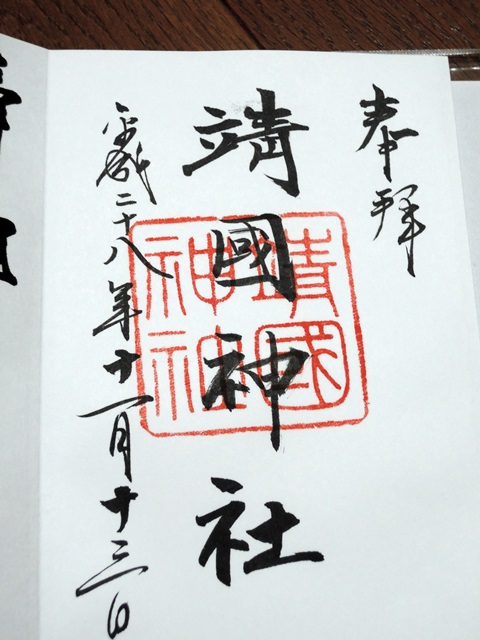 奉拝
靖國神社
靖國神社
平成二十八年十一月十三日